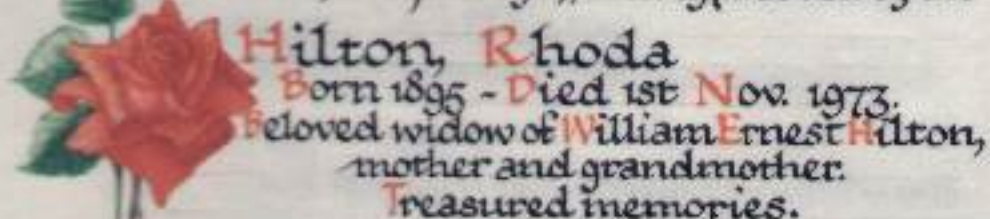 Hilton, Rhoda
Born 1895 - Died 1st Nov. 1973.
Beloved widow of William Ernest Hilton,
mother and grandmother.
Treasured memories.